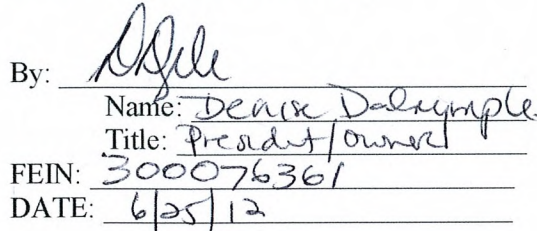 By:
Name: Denise Dalrymple
Title: President/owner
FEIN: 300076361
DATE: 6/25/12